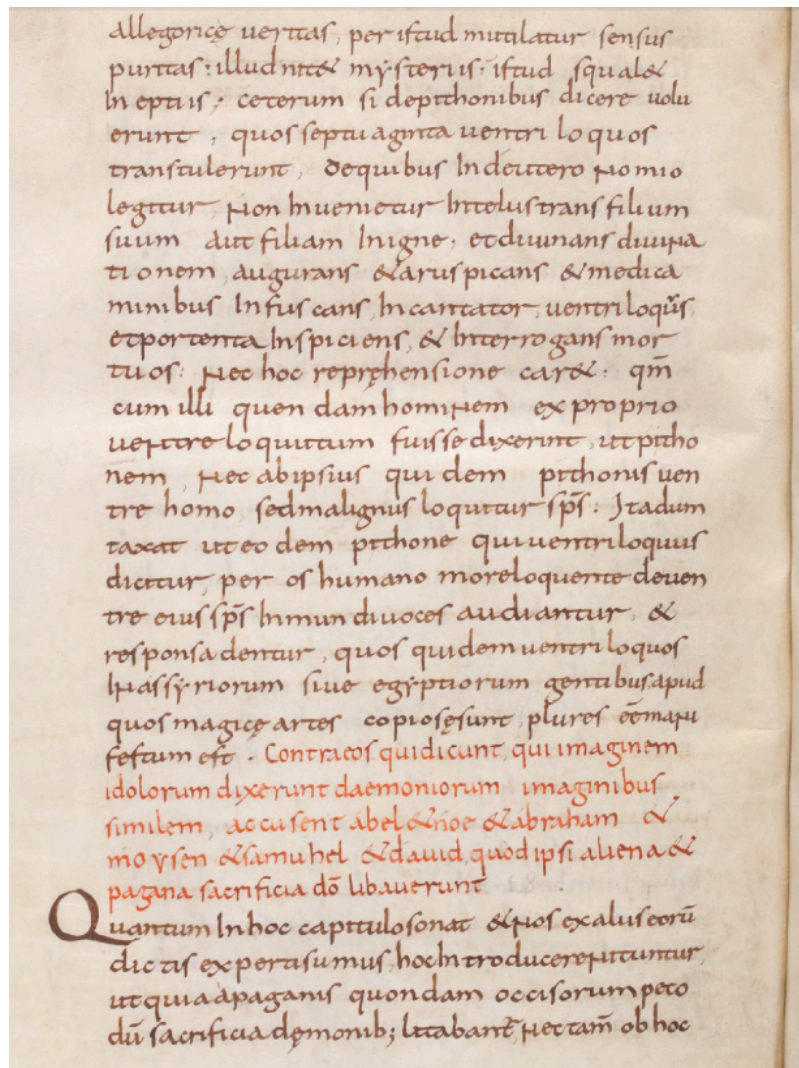 allegoricę ueritas, per istud mutilatur sensus
puritas: illud nit& mysteriis· istud squal&
Ineptiis; ceterum si depithonibus dicere uolu
erunt, quos septuaginta uentriloquos
transtulerunt, dequibus Indeutero Nomio
legitur, Non Inuenietur Intelustrans filium
suum aut filiam Inigne, etdiuinans diuiNa
tionem, augurans &aruspicans &medica
minibus Infuscans, Incantator, uentriloqus,
etportenta Inspiciens, & Interrogans mor
tuos: Nec hoc reprehensione car&· qm̄
cum illi quendam homiNem ex proprio
ueNtre loquutum fuisse dixerint, ut pitho
nem, Nec abipsius quidem pithonis uen
tre homo, sed malignus loquitur sp̄s: Itadum
taxat ut eodem pithone qui uentriloquus
dicitur, per os humano more loquente deuen
tre eius sp̄s Inmundi uoces audiantur, &
responsa dentur, quos quidem uentriloquos
INassyriorum siue egyptiorum gentibus, apud
quos magicę artes copiosęsunt, plures eēmaNi
festum est. Contra eos qui dicunt, qui imaginem
idolorum dixerunt daemoniorum imaginibus
similem, accusent abel &noe &abraham &
moysen &samuhel &dauid, quod ipsi aliena &
pagana sacrificia dō libauerunt
Quantum Inhoc capitulo sonat &Nos exaliis eorū
dictis experti sumus, hoc Introducere Nituntur,
ut quia apaganis quondam occisorum peco
dū sacrificia dęmonib; litabant̄, Nec tam̄ ob hoc